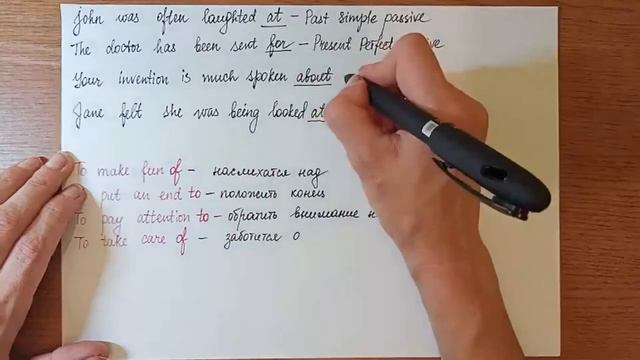 John was often laughted at – Past Simple passive
The doctor has been sent for – Present Perfect
Your invention is much spoken about
Jane felt she was being looked at
To make fun of – насмехатся над
put an end to – положить конец
To pay attention to – обратить внимание н
To take care of – заботится о